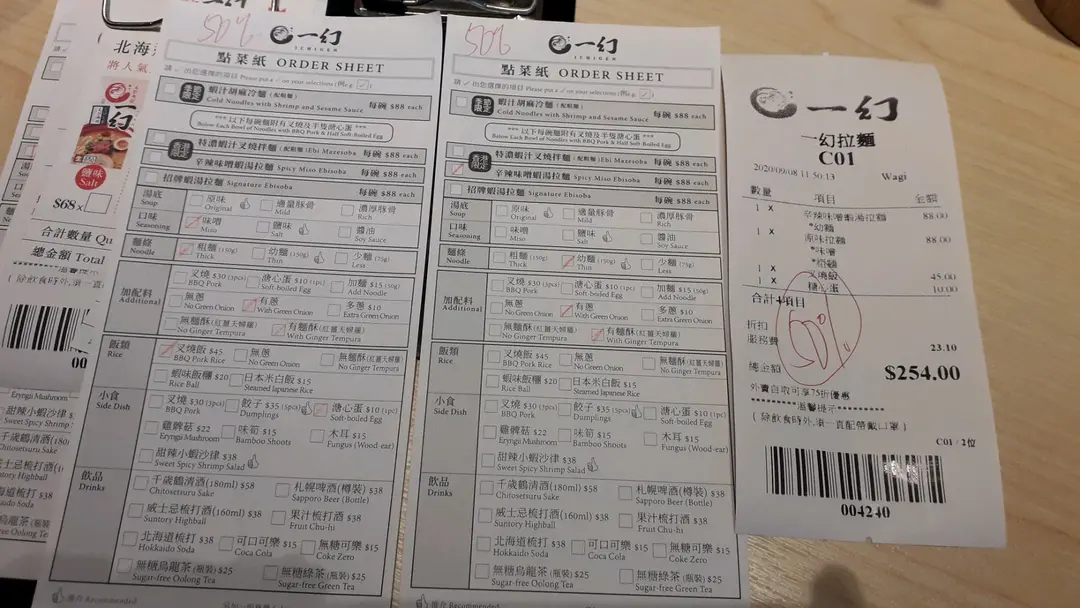 北海
將人氣
鹽味
Salt
$68
合計數量 Qu
總金額 Total
00
Eryngii Mushroom
甜辣小蝦沙律 $
千歲鶴清酒(180ml)
威士忌梳打酒
Suntory Highball
Hokkaido Soda
無糖烏龍茶
-free Oolong Tea
50%
一幻
ICHIGEN
點菜紙 ORDER SHEET
請 ✓ 出您選擇的項目 Please put a ✓ on your selections (例e.g. ✓)
季節限定
蝦汁胡麻冷麵 (配粗麵) 每碗 $88 each
Cold Noodles with Shrimp and Sesame Sauce
*** 以下每碗麵附有叉燒及半隻溏心蛋 ***
Below Each Bowl of Noodles with BBQ Pork & Half Soft-Boiled Egg
香港限定
特濃蝦汁叉燒拌麵 (配粗麵) Ebi Mazesoba 每碗 $88 each
辛辣味噌蝦湯拉麵 Spicy Miso Ebisoba 每碗 $88 each
招牌蝦湯拉麵 Signature Ebisoba 每碗 $88 each
湯底 Soup
原味 Original
適量豚骨 Mild
濃厚豚骨 Rich
口味 Seasoning
味噌 Miso
鹽味 Salt
醬油 Soy Sauce
麵條 Noodle
粗麵 (150g) Thick
幼麵 (150g) Thin
少麵 (75g) Less
加配料 Additional
叉燒 $30 (3pcs) BBQ Pork
溏心蛋 $10 (1pc) Soft-boiled Egg
加麵 $15 (50g) Add Noodle
無蔥 No Green Onion
有蔥 With Green Onion
多蔥 $10 Extra Green Onion
無麵酥 (紅薑天婦羅) No Ginger Tempura
有麵酥 (紅薑天婦羅) With Ginger Tempura
飯類 Rice
叉燒飯 $45 BBQ Pork Rice
無蔥 No Green Onion
無麵酥 (紅薑天婦羅) No Ginger Tempura
蝦味飯糰 $20 Rice Ball
日本米白飯 $15 Steamed Japanese Rice
小食 Side Dish
叉燒 $30 (3pcs) BBQ Pork
餃子 $35 (5pcs) Dumplings
溏心蛋 $10 (1pc) Soft-boiled Egg
雞髀菇 $22 Eryngii Mushroom
味筍 $15 Bamboo Shoots
木耳 $15 Fungus (Wood-ear)
甜辣小蝦沙律 $38 Sweet Spicy Shrimp Salad
飲品 Drinks
千歲鶴清酒(180ml) $58 Chitosetsuru Sake
札幌啤酒(樽裝) $38 Sapporo Beer (Bottle)
威士忌梳打酒(160ml) $38 Suntory Highball
果汁梳打酒 $38 Fruit Chu-hi
北海道梳打 $38 Hokkaido Soda
可口可樂 $15 Coca Cola
無糖可樂 $15 Coke Zero
無糖烏龍茶 (瓶裝) $25 Sugar-free Oolong Tea
無糖綠茶 (瓶裝) $25 Sugar-free Green Tea
推介 Recommended
50%
一幻
ICHIGEN
點菜紙 ORDER SHEET
請 ✓ 出您選擇的項目 Please put a ✓ on your selections (例e.g. ✓)
季節限定
蝦汁胡麻冷麵 (配粗麵) 每碗 $88 each
Cold Noodles with Shrimp and Sesame Sauce
*** 以下每碗麵附有叉燒及半隻溏心蛋 ***
Below Each Bowl of Noodles with BBQ Pork & Half Soft-Boiled Egg
香港限定
特濃蝦汁叉燒拌麵 (配粗麵) Ebi Mazesoba 每碗 $88 each
辛辣味噌蝦湯拉麵 Spicy Miso Ebisoba 每碗 $88 each
招牌蝦湯拉麵 Signature Ebisoba 每碗 $88 each
湯底 Soup
原味 Original
適量豚骨 Mild
濃厚豚骨 Rich
口味 Seasoning
味噌 Miso
鹽味 Salt
醬油 Soy Sauce
麵條 Noodle
粗麵 (150g) Thick
幼麵 (150g) Thin
少麵 (75g) Less
加配料 Additional
叉燒 $30 (3pcs) BBQ Pork
溏心蛋 $10 (1pc) Soft-boiled Egg
加麵 $15 (50g) Add Noodle
無蔥 No Green Onion
有蔥 With Green Onion
多蔥 $10 Extra Green Onion
無麵酥 (紅薑天婦羅) No Ginger Tempura
有麵酥 (紅薑天婦羅) With Ginger Tempura
飯類 Rice
叉燒飯 $45 BBQ Pork Rice
無蔥 No Green Onion
無麵酥 (紅薑天婦羅) No Ginger Tempura
蝦味飯糰 $20 Rice Ball
日本米白飯 $15 Steamed Japanese Rice
小食 Side Dish
叉燒 $30 (3pcs) BBQ Pork
餃子 $35 (5pcs) Dumplings
溏心蛋 $10 (1pc) Soft-boiled Egg
雞髀菇 $22 Eryngii Mushroom
味筍 $15 Bamboo Shoots
木耳 $15 Fungus (Wood-ear)
甜辣小蝦沙律 $38 Sweet Spicy Shrimp Salad
飲品 Drinks
千歲鶴清酒(180ml) $58 Chitosetsuru Sake
札幌啤酒(樽裝) $38 Sapporo Beer (Bottle)
威士忌梳打酒(160ml) $38 Suntory Highball
果汁梳打酒 $38 Fruit Chu-hi
北海道梳打 $38 Hokkaido Soda
可口可樂 $15 Coca Cola
無糖可樂 $15 Coke Zero
無糖烏龍茶 (瓶裝) $25 Sugar-free Oolong Tea
無糖綠茶 (瓶裝) $25 Sugar-free Green Tea
推介 Recommended
一幻
一幻拉麵
C01
2020/09/08 11:50:13 Wagi
數量 項目 金額
1 x 辛辣味噌蝦湯拉麵 88.00
*幼麵
1 x 原味拉麵 88.00
*味噌
*粗麵
1 x 叉燒飯 45.00
1 x 糖心蛋 10.00
合計4項目
折扣
服務費 23.10
總金額 $254.00
50%
外賣自取可享75折優惠
溫馨提示
( 除飲食時外,須一直配帶戴口罩 )
C01 / 2位
004240